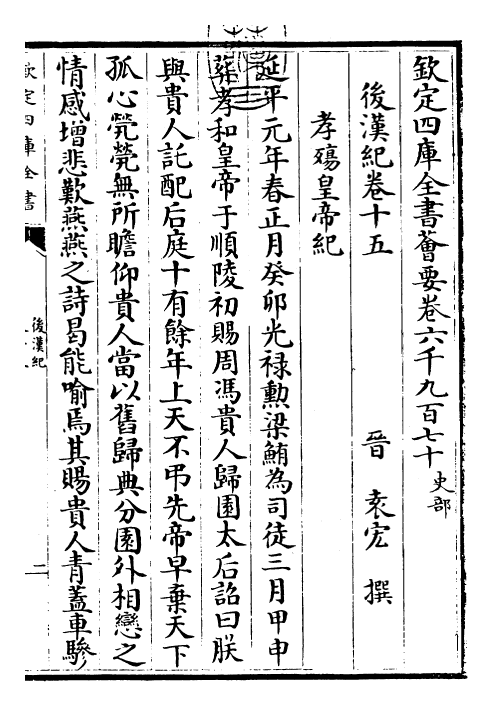 欽定四庫全書薈要卷六千九百七十 史部
後漢紀卷十五
晉 袁宏 撰
孝殤皇帝紀
延平元年春正月癸卯光禄勲梁鮪為司徒三月甲申
葬孝和皇帝于順陵初賜周馮貴人歸園太后詔曰朕
與貴人託配后庭十有餘年上天不弔先帝早棄天下
孤心煢煢無所瞻仰貴人當以舊歸典分園外相戀之
情感增悲歎燕燕之詩曷能喻焉其賜貴人青蓋車驂
欽定四庫全書
後漢紀